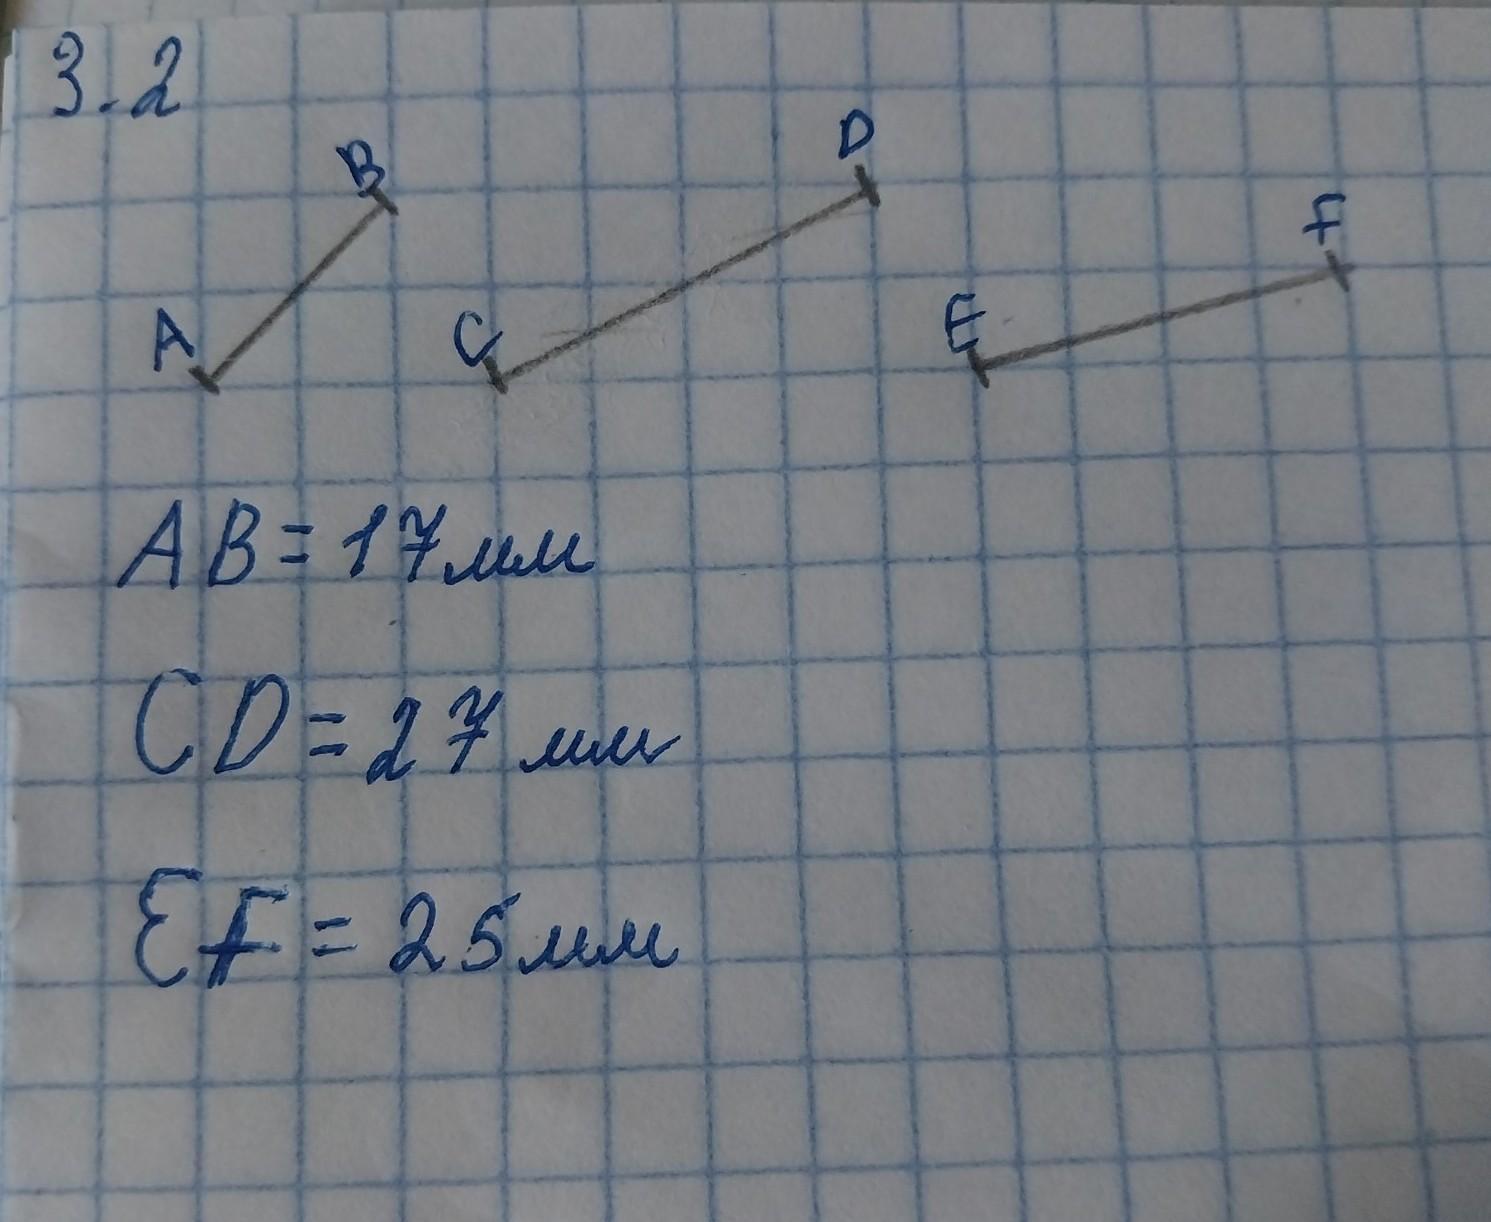 3.2
A B C D E F
AB = 17 мм
CD = 27 мм
EF = 25 мм